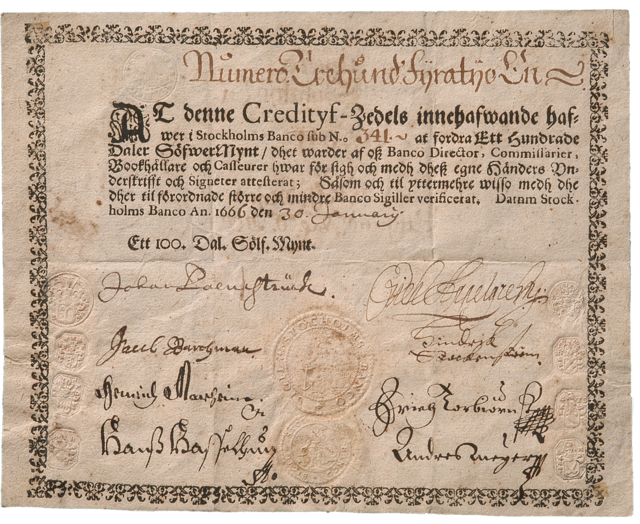 Numero Trehund Fyratyo En
AT denne Credityf-Zedels innehafwande haf-
wer i Stockholms Banco sub N.o 341. at fordra Ett Hundrade
Daler SöfwerMynt / dhet warder af oß Banco Director, Commissarier,
Bookhållare och Casseurer hwar för sigh och medh dheß egne Händers Vn-
derskrifft och Signeter attesterat; Såsom och til yttermehre wisso medh dhe
dher til förordnade större och mindre Banco Sigiller verificerat. Datum Stock-
holms Banco An. 1666 den 30. January.
Ett 100. Dal. Sölf. Mynt.
Johan Palmstruch.
Hindrik
Jacob
Hans
Anders Meyer